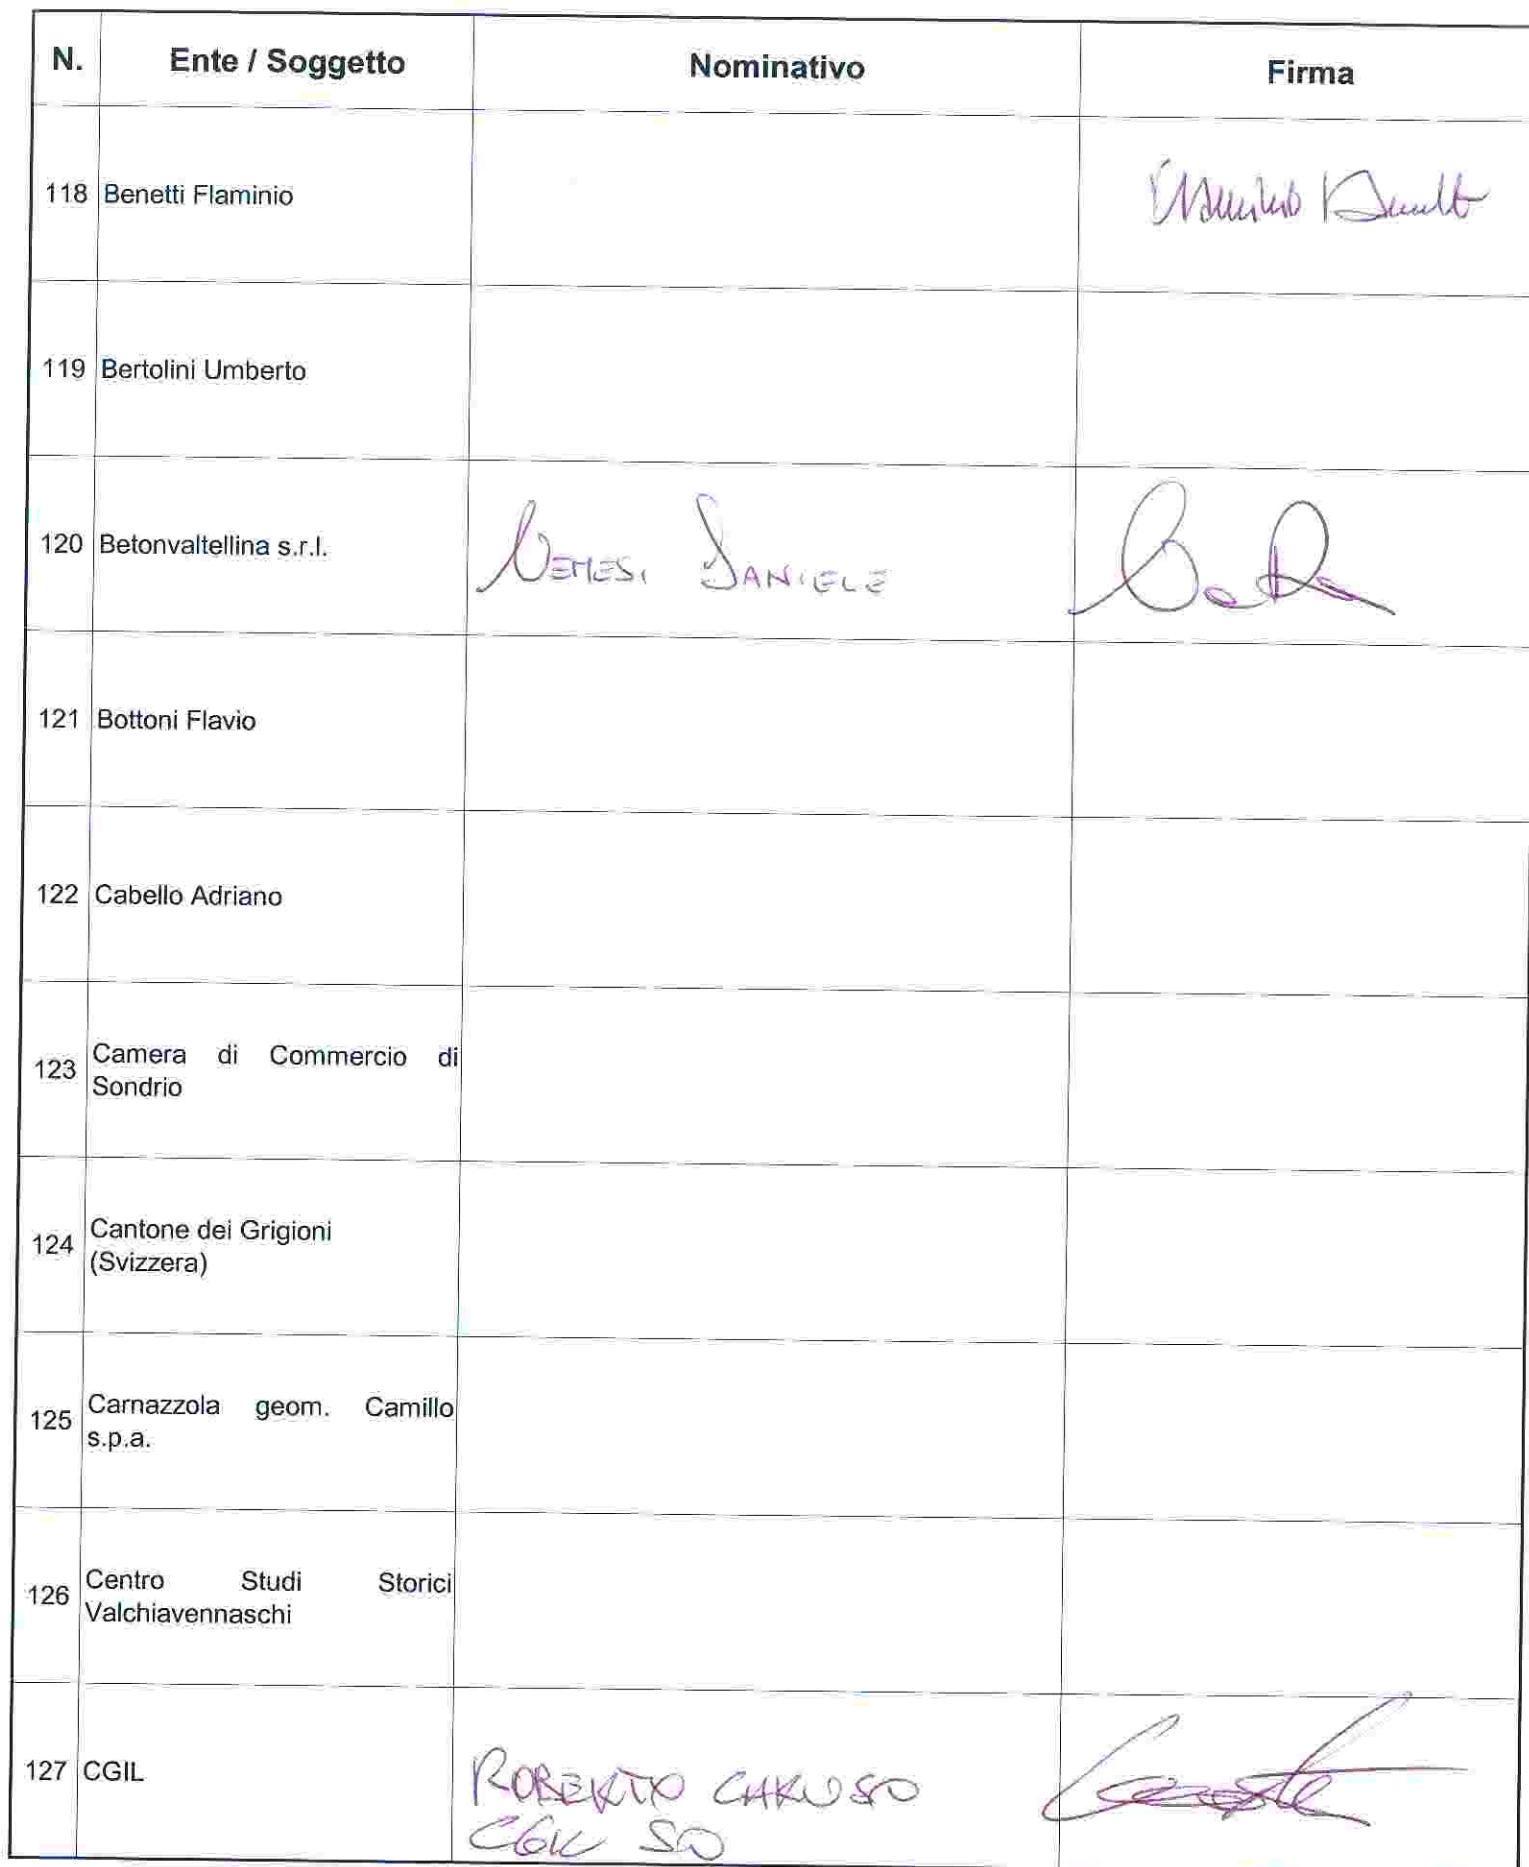 N. Ente / Soggetto Nominativo Firma
118 Benetti Flaminio Flaminio Benetti
119 Bertolini Umberto
120 Betonvaltellina s.r.l. DANIELE
121 Bottoni Flavio
122 Cabello Adriano
123 Camera di Commercio di
Sondrio
124 Cantone dei Grigioni
(Svizzera)
125 Carnazzola geom. Camillo
s.p.a.
126 Centro Studi Storici
Valchiavennaschi
127 CGIL ROBERTO CARUSO
CGIL SO